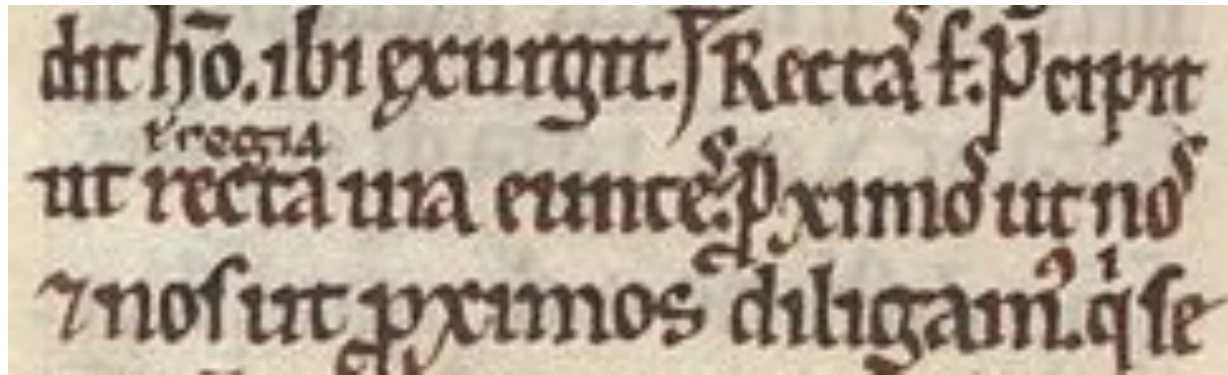 dit hō. ibi exurgit. Rectas f. P̄cipit
ł regia
ut recta uia euntes. ꝓximos ut nos
⁊ nos ut ꝓximos diligam᷒. qͥ se